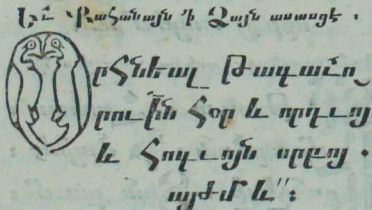 Եւ Քահանայն ՚ի Ձայն ասասցէ ։
Օրհնեալ Թագաւո֊
րուի՟ն Հօր և որդւոյ
և Հոգւոյն սրբոյ .
այժմ և՟՟ ։